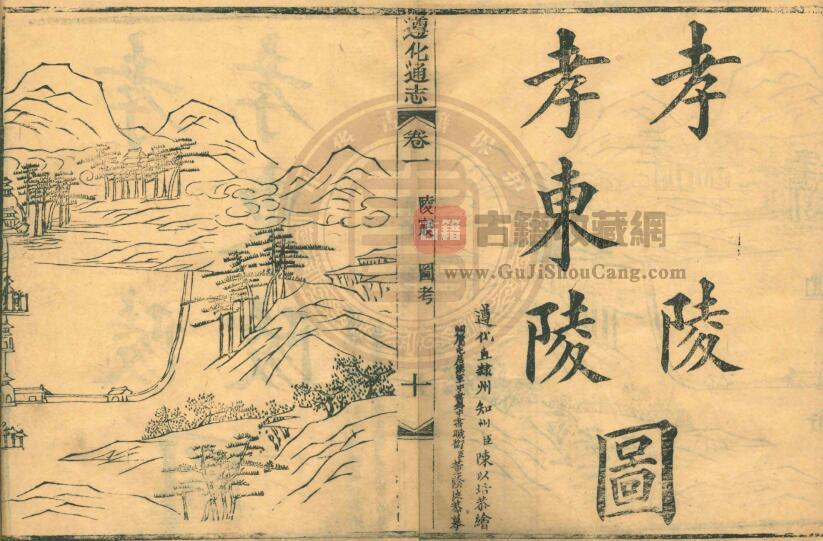 孝陵
孝東陵
圖
遵化直隸州知州臣陳以培恭繪
遵化通志
卷一
陵寢
圖考
十
古籍
古籍收藏網
www.GuJiShouCang.com